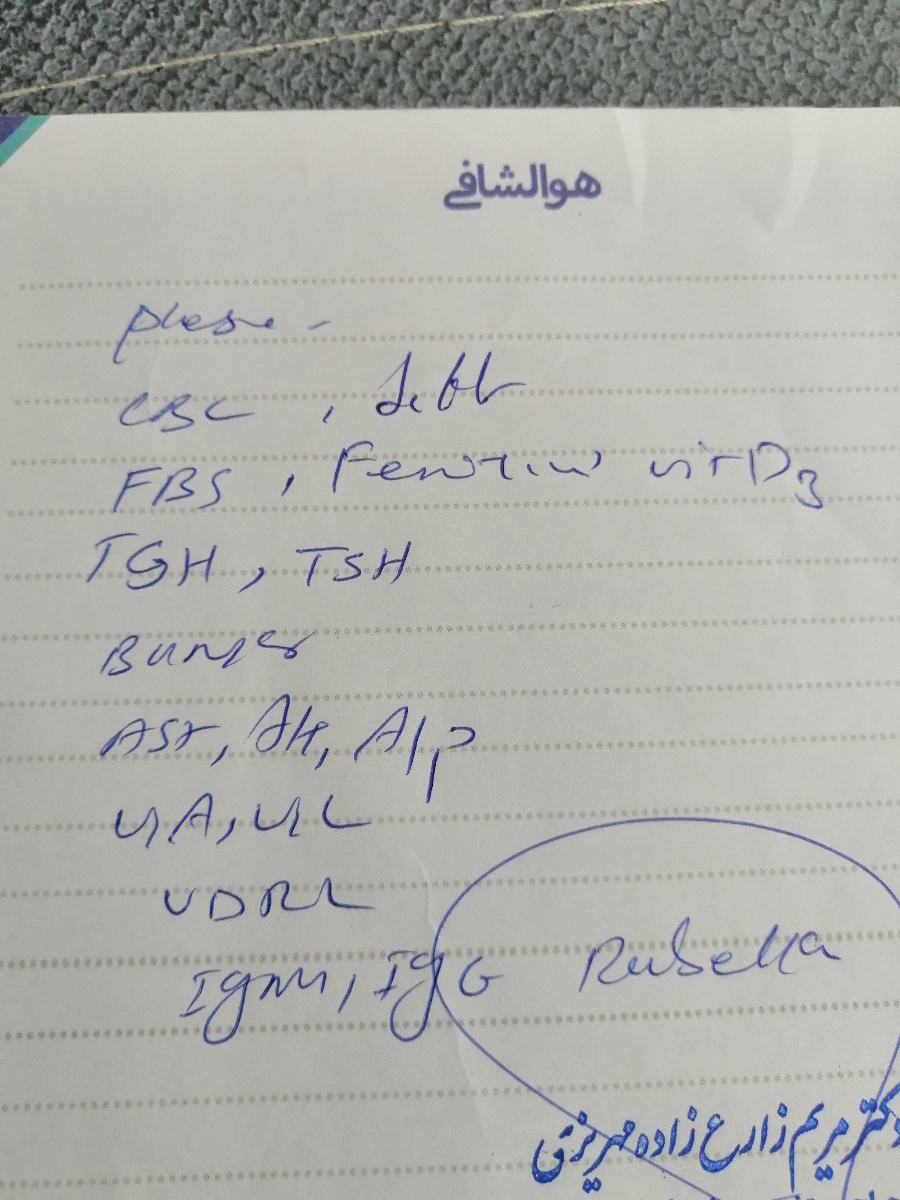 هوالشافے
please -
CBC ,
FBS , Ferritin vit D3
TSH
AST, Alt, Alp
U/A, U/C
VDRL
IgM, IgG Rubella
دکتر مریم زارع زاده مهریزی